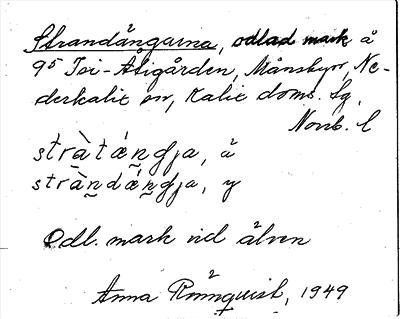 Strandängarna, odlad mark å
9⁵ Isi-Atigården, Månsbyn, Ne-
derkalix sn, Kalix doms. lg,
Norrb. l
stràtǽṉḏja, ä
stràṉdǽṉḏja, y
Odl. mark vid älven
Anna Rönnquist, 1949